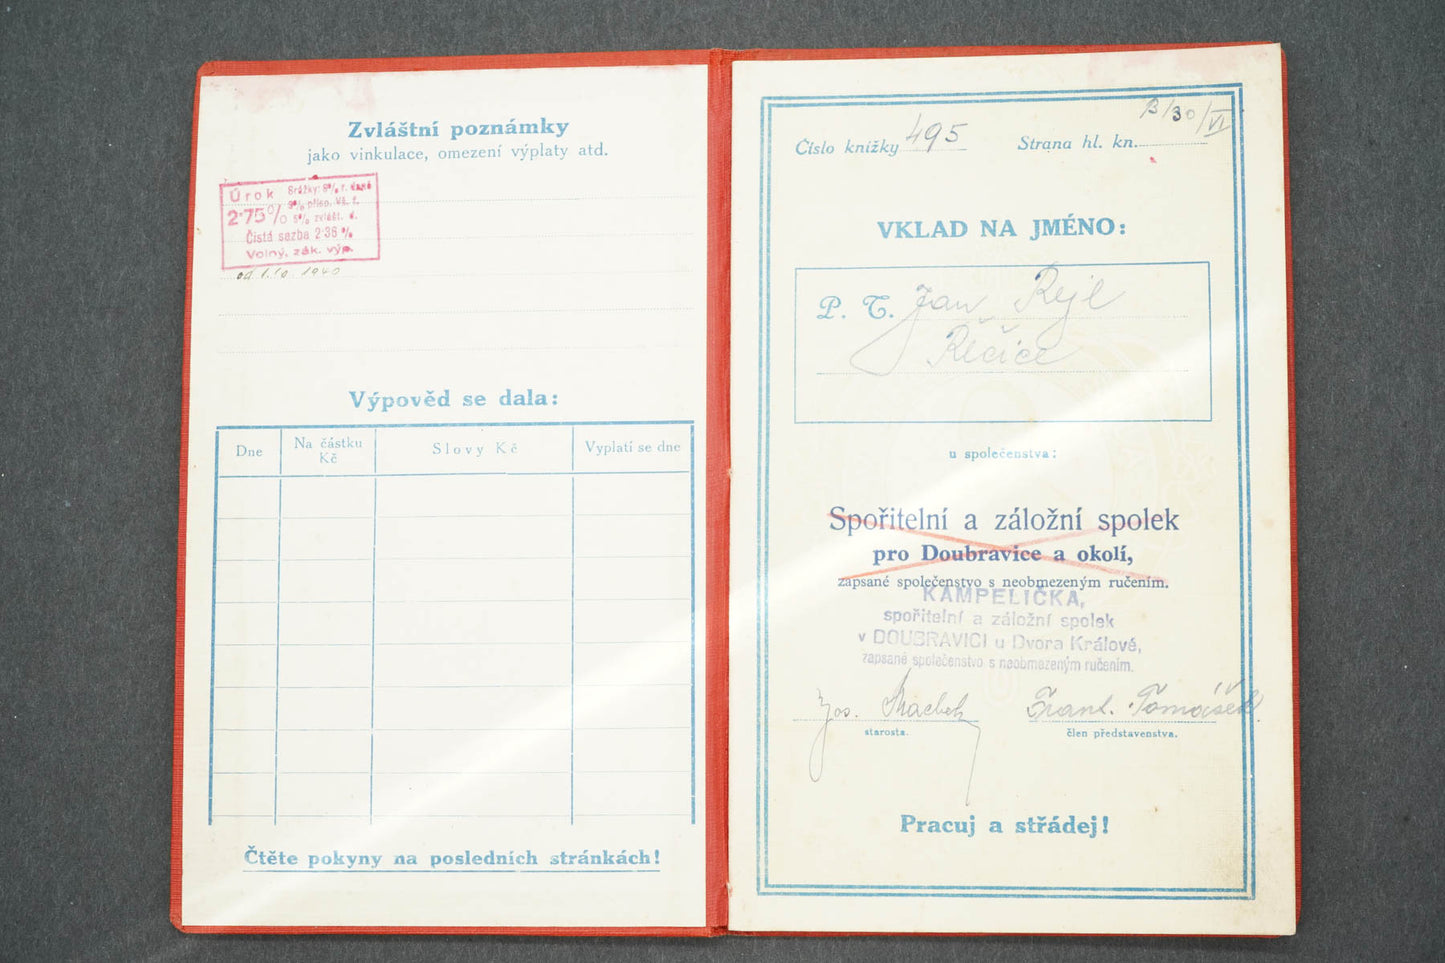 Zvláštní poznámky
jako vinkulace, omezení výplaty atd.
Úrok Srážky: 9% r. daně
2·75% 3% přiso. Vš. f.
5% zvlášt. d.
Čistá sazba 2·36 %
Volný, zák. výp.
od 1.10. 1940
Výpověd se dala:
Dne
Na částku Kč
Slovy Kč
Vyplatí se dne
Čtěte pokyny na posledních stránkách!
Číslo knížky 495
Strana hl. kn. B/30/VI
VKLAD NA JMÉNO:
P. T. Jan Rejl
Řečice
u společenstva:
Spořitelní a záložní spolek
pro Doubravice a okolí,
zapsané společenstvo s neobmezeným ručením.
KAMPELIČKA,
spořitelní a záložní spolek
v DOUBRAVICI u Dvora Králové,
zapsané společenstvo s neobmezeným ručením.
Jos. Frant. Tomášek
starosta.
člen představenstva.
Pracuj a střádej!